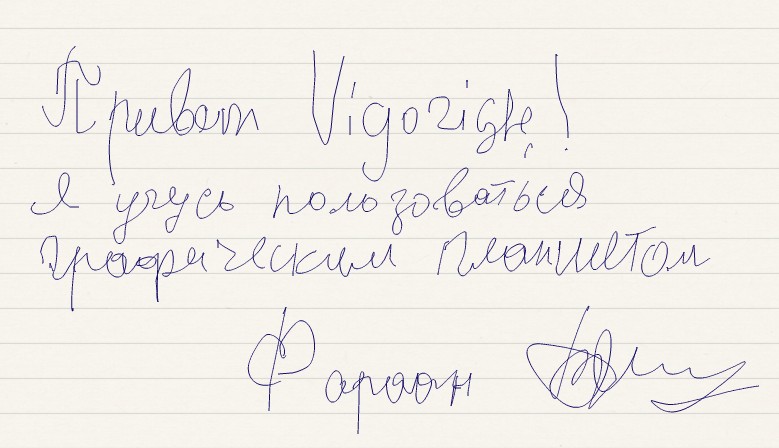 Привет Vigorigte!
я учусь пользоваться
графическим планшетом
Фараон